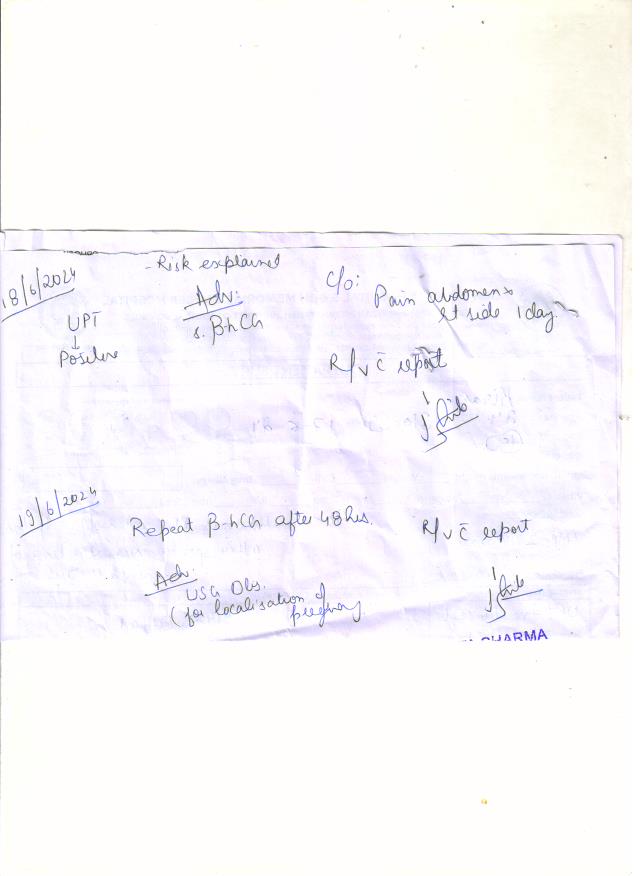 18/6/2024
- Risk explained
Adv:
s. β-hCG
UPT
↓
Positive
c/o: Pain abdomen x
lt side 1 day.
R/v c̄ report
19/6/2024
Repeat β-hCG after 48 hrs.
R/v c̄ report
Adv:
USG Obs.
(for localisation of
pregnancy
SHARMA